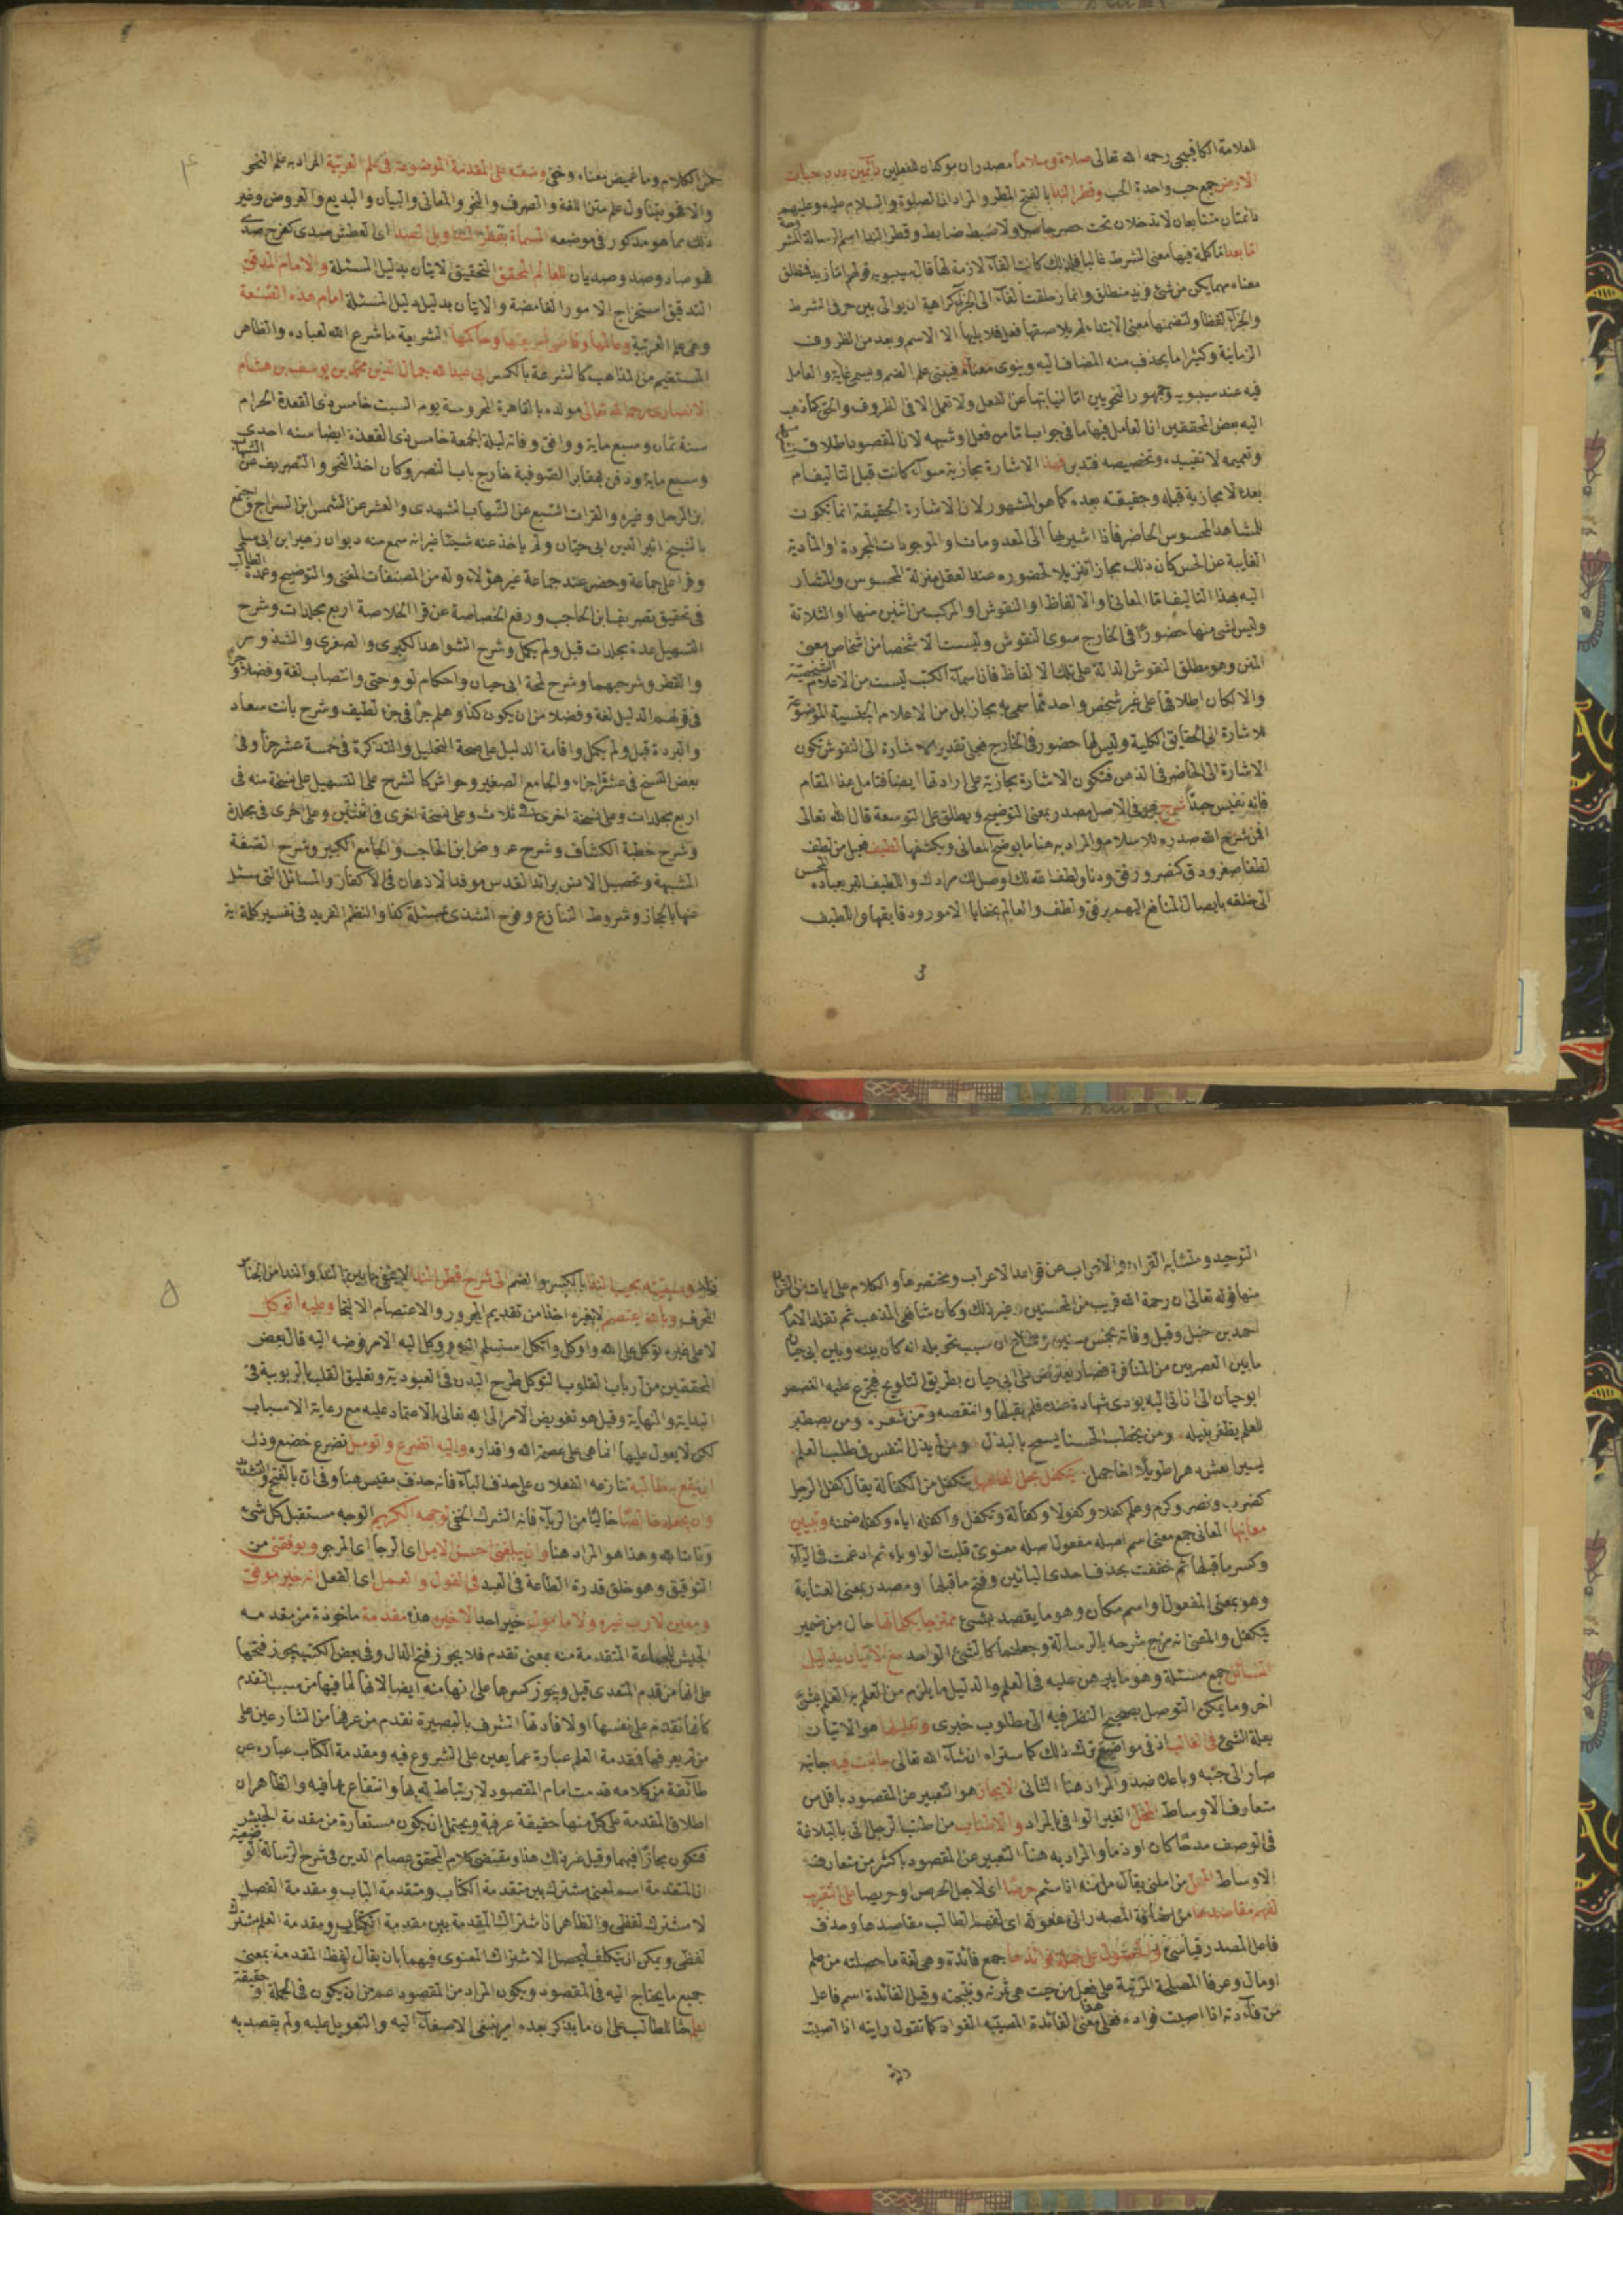 العلامة الكافيجي رحمه الله تعالى صلاة وسلاما مصدران موكدان للفعلين دائمين عدد حبات
الارض جمع حب واحدة الحب وقطر الندا بالفتح المطر والمراد ان الصلوة والسلام عليه وعليهم
دائمتان متتابعان لا تدخلان تحت حصر حاصر ولا ضبط ضابط وقطر الندا اسم
اما بعد اما كلمة فيها معنى الشرط غالبا فلذلك كانت الفاء لازمة لها قال سيبويه قولهم اما زيد فمنطلق
معناه مهما يكن من شئ فزيد منطلق وانما زحلقت الفاء الى الجزء كراهية ان يوالى بين حرفى الشرط
والجزاء لفظا ولتضمنها معنى الابتداء لم يلاصقها فعل فلا يليها الا الاسم وبعد من الظروف
الزمانية وكثيرا ما يحذف منه المضاف اليه وينوى معناه فيبنى على الضم ويسمى غاية والعامل
فيه عند سيبويه وجمهور النحويين اما لنيابتها عن الفعل ولا تعمل الا فى الظروف والحق كما ذهب
اليه بعض المحققين ان العامل فيها ما فى جواب اما من فعل وشبهه لان المقصود اطلاق
وتعميمه لا تقييده وتخصيصه فتدبر فهذا الاشارة مجازية سواء كانت قبل التاليف ام
بعده لا مجازية قبله وحقيقته بعده كما هو المشهور لان الاشارة الحقيقة انما تكون
للمشاهد المحسوس الحاضر فاذا اشير بها الى المعدومات والموجودات المجردة او المادية
الغايبة عن الحس كان ذلك مجازا تنزيلا لحضوره عند العقل منزلة المحسوس والمشار
اليه بهذا التاليف اما المعانى او الالفاظ او النقوش او المركب من اثنين منها او الثلاثة
وليس لشئ منها حضور فى الخارج سوى النقوش وليست الا شخصا من اشخاص معنى
المتن وهو مطلق النقوش الدالة على تلك الالفاظ فان اسماء الكتب ليست من الاعلام الشخصية
والا لكان اطلاقها على غير شخص واحد مما سمى به مجازا بل من الاعلام الجنسية الموضوعة
للاشارة الى الحقايق الكلية وليس لها حضور فى الخارج فعلى تقدير الاشارة الى النقوش تكون
الاشارة الى الحاضر فى الذهن فتكون الاشارة مجازية على ارادتها ايضا فتامل هذا المقام
فانه نفيس جدا شرح هو فى الاصل مصدر بمعنى التوضيح ويطلق على التوسعة قال الله تعالى
افمن شرح الله صدره للاسلام والمراد به هنا ما يوضح المعانى ويكشفها لطيف فعيل من لطف
لطفا صغر ودق كنصر ورفق ودنا ولطف الله لك اوصل لك مرادك واللطيف البر بعباده المحسن
الى خلقه بايصال المنافع اليهم برفق ولطف والعالم بخفايا الامور ودقايقها واللطيف
3
٤
من الكلام وما غمض معناه وخفى وضعته على المقدمة الموضوعة فى علم العربية المراد به علم النحو
والا فهو يتناول علم متن اللغة والتصرف والنحو والمعانى والبيان والبديع والعروض وغير
ذلك مما هو مذكور فى موضعه المسماة بقطر الندا وبل الصدا اى العطش صدى كفرح صدى
فهو صاد وصد وصديان للعالم المحقق التحقيق الاتيان بدليل المسئلة والامام المدقق
التدقيق استخراج الامور الغامضة والاتيان بدليل دليل المسئلة امام هذه الصنعة
وهى علم العربية وعالمها وقاضى شريعتها وحاكمها الشريعة ما شرع الله لعباده والظاهر
المستقيم من المذاهب كالشرعة بالكسر ابى عبد الله جمال الدين محمد بن يوسف بن هشام
الانصارى رحمه الله تعالى مولده بالقاهرة المحروسة يوم السبت خامس ذى القعدة الحرام
سنة ثمان وسبع ماية ووافق وفاته ليلة الجمعة خامس ذى القعدة ايضا سنه احدى
وسبع ماية ودفن بمقابر الصوفية خارج باب النصر وكان اخذ النحو والتصريف عن الشهاب
ابن المرحل وغيره والقرات السبع عن الشهاب المشهدى والعشر عن الشمس ابن السراج
بالشيخ اثير الدين ابى حيان ولم ياخذ عنه شيئا غير انه سمع منه ديوان زهير ابن ابى سلمى
وقرا على جماعة وحضر عند جماعة غير هؤلاء وله من المصنفات المغنى والتوضيح وعمدة الطالب
فى تحقيق تصريف ابن الحاجب ورفع الخصاصة عن قرا الخلاصة اربع مجلدات وشرح
التسهيل عدة مجلدات قيل ولم يكمل وشرح الشواهد الكبرى والصغرى والشذور
والقطر وشرحهما وشرح لمحة ابى حيان واحكام لو وحتى وانتصاب لغة وفضلا
فى قولهم الدليل لغة وفضلا من ان يكون كذا وهلم جرا فى جزء لطيف وشرح بانت سعاد
والبردة قيل ولم يكمل واقامة الدليل على صحة التحليل والتذكرة فى خمسة عشر جزأ وفى
بعض النسخ فى عشرة اجزاء والجامع الصغير وحواش كالشرح على التسهيل على نسخة منه فى
اربع مجلدات وعلى نسخة اخرى فى ثلاث وعلى نسخة اخرى فى اثنتين وعلى اخرى فى مجلدة
وشرح خطبة الكشاف وشرح عروض ابن الحاجب والجامع الكبير وشرح القصة
المشبهة وتحصيل الانس برائد القدس موقد الاذهان فى الالغاز والمسائل التى سئل
عنها بالحجاز وشروط التنازع وفوح الشذى بمسئلة كذا والنظم الفريد فى تفسير كلمة
التوحيد ومتشابه القران والاعراب عن قواعد الاعراب ومختصرها والكلام على ايات من القران
منها قوله تعالى ان رحمة الله قريب من المحسنين وغير ذلك وكان شافعى المذهب ثم تقلد الامام
احمد بن حنبل وقيل وفاته بخمس سنين ان سبب تحوله انه كان بينه وبين ابى حيان
ما بين العصريين من المنافرة فصار يعترض على ابى حيان بطريق التلويح
ابو حيان الى ان اتى اليه يودى شهادة عنده فلم يقبلها وانتقصه ومن شعره ومن يصطبر
للعلم يظفر بنيله ومن يخطب الحسنا يسمح بالبذل ومن لم يذل النفس فى طلب العلم
يسيرا يعش دهرا طويلا اخا جهل يتكفل بحل الفاظها يتكفل من الكفالة يقال كفل الرجل
كضرب ونصر وكرم وعلم كفلا وكفولا وكفالة وتكفل واكفله اياه وكفله ضمنه وتبيين
معانيها المعانى جمع معنى اسم اصله مفعول اصله معنوى قلبت الواو ياء ثم ادغمت فى الياء
وكسر ما قبلها ثم خففت بحذف احدى اليائين وفتح ما قبلها او مصدر بمعنى العناية
وهو بمعنى المفعول او اسم مكان وهو ما يقصد بشئ ممتزجا بكلماتها حال من ضمير
يتكفل والمعنى انه مزج شرحه بالرسالة وجعلهما كالشئ الواحد مع الاتيان بدليل
المسائل جمع مسئلة وهو ما يبرهن عليه فى العلم والدليل ما يلزم من العلم به العلم بشئ
اخر وما يمكن التوصل بصحيح النظر فيه الى مطلوب خبرى وتعليلها هو الاتيان
بعلة الشئ فى الغالب اذ فى مواضع ترك ذلك كما ستراه ان شاء الله تعالى جانبت فيه جانبه
صار الى جنبه وباعده ضد والمراد هنا الثانى الايجاز هو التعبير عن المقصود باقل من
متعارف الاوساط المخل الغير الوافى بالمراد والاطناب من اطنب الرجل اتى بالبلاغة
فى الوصف مدحا كان او ذما والمراد به هنا التعبير عن المقصود باكثر من متعارف
الاوساط الممل من املنى يقال مل منه اذا سئم حرصا اى لاجل الحرص او حريصا على التقريب
لفهم مقاصدها من اضافة المصدر الى مفعوله اى لفهم الطالب مقاصدها وحذف
فاعل المصدر قياسى والحصول على جملة فوائدها جمع فائدة وهى لغة ما حصلته من علم
او مال وعرفا المصلحة المترتبة على فعل من حيث هى ثمرته ونتيجته وقيل الفائدة اسم فاعل
من فأدته اذا اصبت فواده فعلى هذا معنى الفائدة المصيبة الفواد كما تقول رايته اذا اصبت
٥
وسميته مجيب الندا بالكسر والضم الى شرح قطر الندا لا يخفى ما بين الندا والندا من الجناس
المحرف وبالله اعتصم لا بغيره اخذا من تقديم المجرور والاعتصام الالتجا وعليه اتوكل
لا على غيره توكل على الله واوكل واتكل استسلم اليه ووكل اليه الامر فوضه اليه قال بعض
المحققين من ارباب القلوب التوكل طرح البدن فى العبودية وتعليق القلب بالربوبية فى
البداية والنهاية وقيل هو تفويض الامر الى الله تعالى والاعتماد عليه مع رعاية الاسباب
لكن لا يعول عليها انما هى على عصمة الله واقداره واليه اتضرع واتوسل تضرع خضع وذل
ان ينفع به طالبيه تنازعه الفعلان على حذف الباء فانه حذف مقيس هنا وفى ان بالفتح والتشديد
وان يجعله خالصا خاليا من الرياء فانه الشرك الخفى لوجهه الكريم الوجه مستقبل كل شئ
وذات الله وهذا هو المراد هنا وان يبلغنى احسن الامل اى الرجا اى المرجو ويوفقنى من
التوفيق وهو خلق قدرة الطاعة فى العبد فى القول والعمل اى الفعل انه خير موفق
ومعين لا رب غيره ولا مامول خير احد الا خيره هذه مقدمة ماخوذة من مقدمه
الجيش للجماعة المتقدمة منه بمعنى تقدم فلا يجوز فتح الدال وفى بعض الكتب يجوز فتحها
على انها من قدم المتعدى قيل ويجوز كسرها على انها منه ايضا لانها لما فيها من سبب التقدم
كانها تقدم على نفسها او لافادتها الشرف بالبصيرة تقدم من عرفها من الشارعين على
من لم يعرفها فمقدمة العلم عبارة عما يعين على الشروع فيه ومقدمة الكتاب عبارة عن
طائفة من كلامه قدمت امام المقصود لارتباط له بها وانتفاع بها فيه والظاهر ان
اطلاق المقدمة على كل منها حقيقة عرفية ويحتمل ان تكون مستعارة من مقدمة الجيش
فتكون مجازا فيهما وقيل غير ذلك هذا ومقتضى كلام المحقق عصام الدين فى شرح الرسالة الوضعية
ان المقدمة اسم لمعنى مشترك بين مقدمة الكتاب ومقدمة الباب ومقدمة الفصل
لا مشترك لفظى والظاهر ان اشتراك المقدمة بين مقدمة الكتاب ومقدمة العلم مشترك
لفظى ويمكن ان يتكلف ليحصل الاشتراك المعنوى فيهما بان يقال لفظ المقدمة بمعنى
جميع ما يحتاج اليه فى المقصود ويكون المراد من المقصود اعم من ان يكون فى الجملة او حقيقة
اعلم حثا للطالب على ان ما يذكر بعده امر ينبغى الاصغاء اليه والتعويل عليه ولم يقصد به